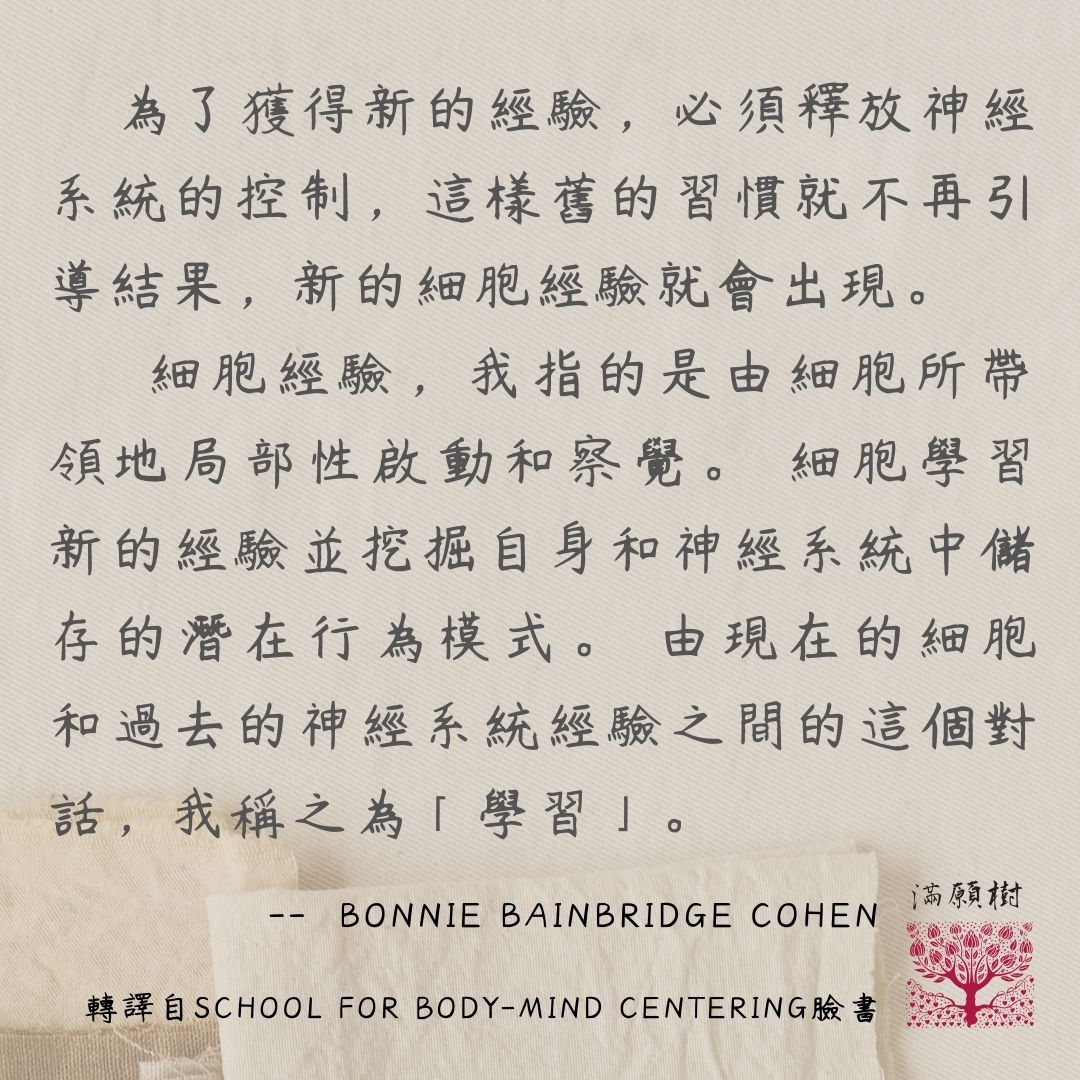 為了獲得新的經驗，必須釋放神經
系統的控制，這樣舊的習慣就不再引
導結果，新的細胞經驗就會出現。
細胞經驗，我指的是由細胞所帶
領地局部性啟動和察覺。 細胞學習
新的經驗並挖掘自身和神經系統中儲
存的潛在行為模式。 由現在的細胞
和過去的神經系統經驗之間的這個對
話，我稱之為「學習」。
-- BONNIE BAINBRIDGE COHEN
滿願樹
轉譯自SCHOOL FOR BODY-MIND CENTERING臉書